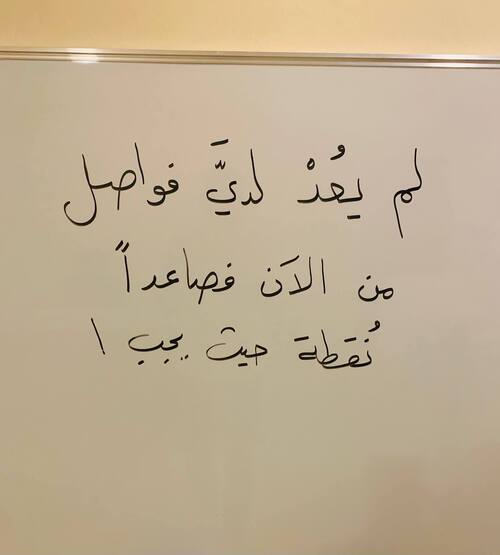 لم يعُدْ لديَّ فواصل
من الآن فصاعداً
نُقطة حيث يجب !